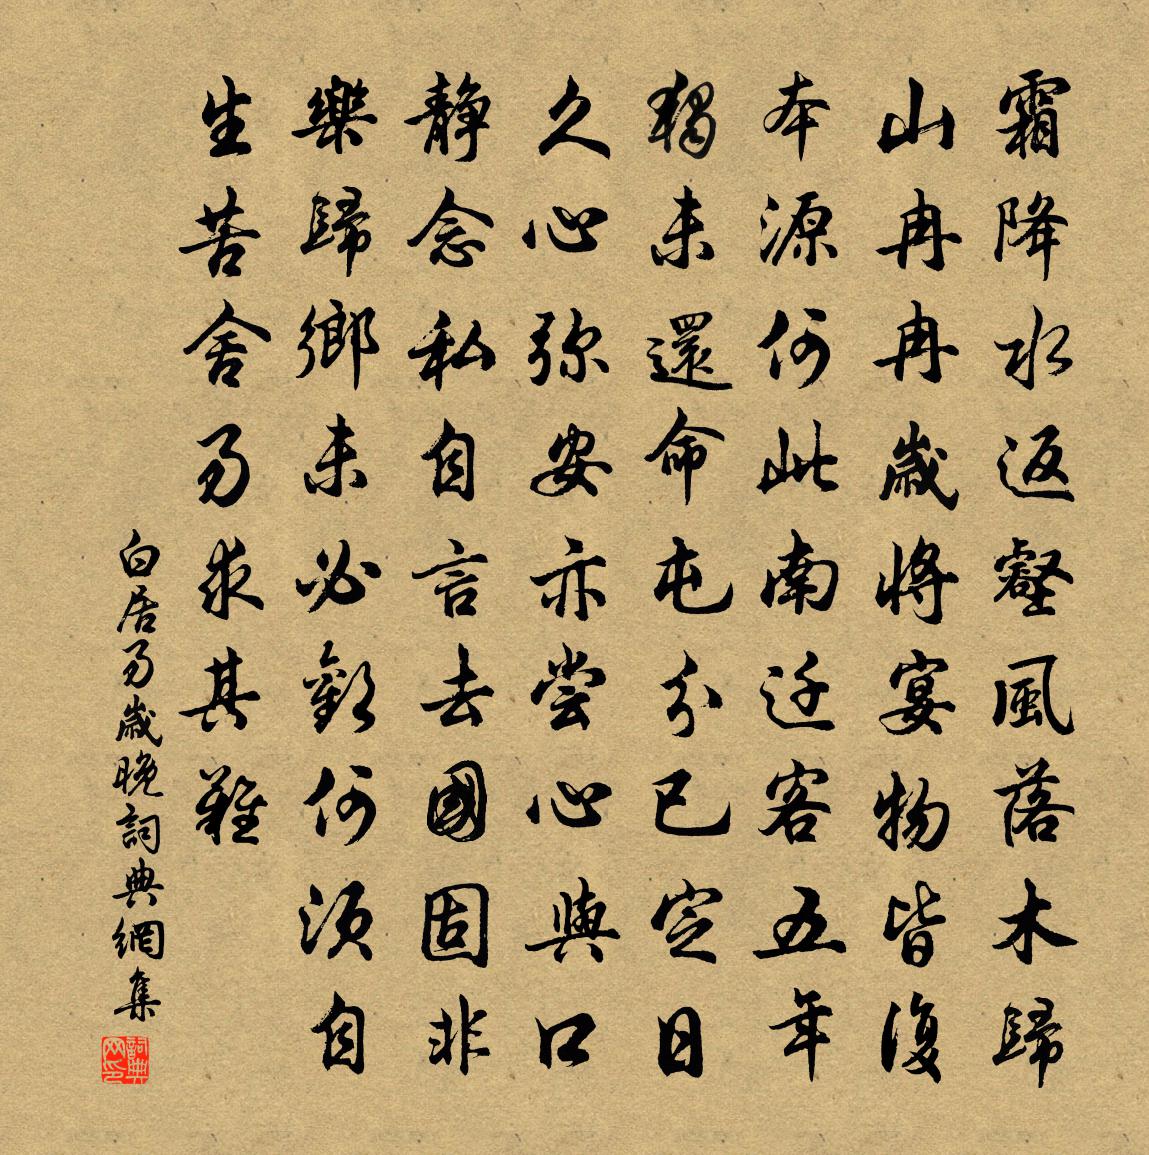 霜降水返壑風落木歸
山冉冉歲將宴物皆復
本源何此南迁客五年
獨未還命屯分已定日
久心弥安亦嘗心與口
靜念私自言去國固非
樂歸鄉未必歡何須自
生苦舍易求其難
白居易歲晚詞典網集
詞典网印